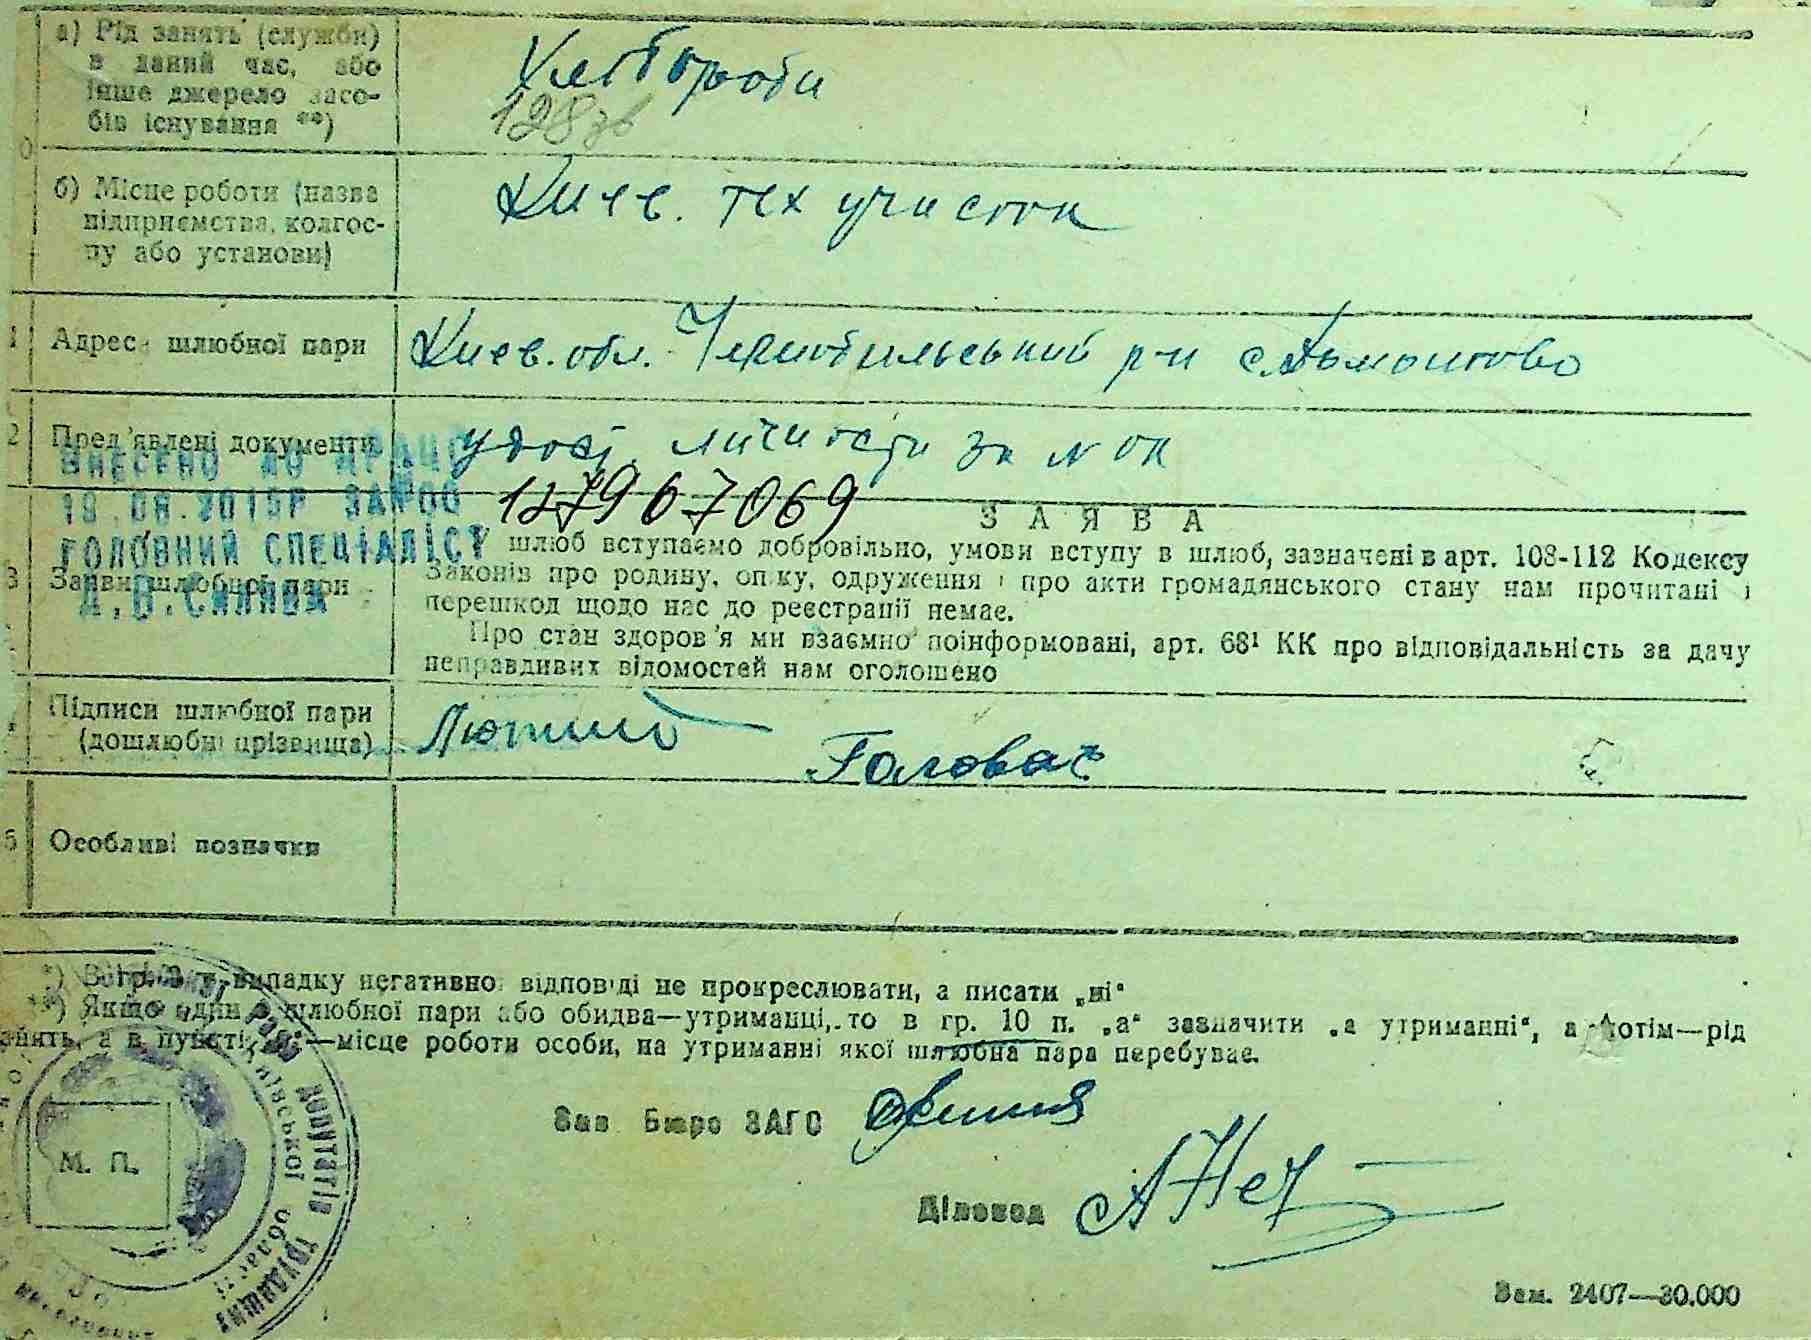 а) Рід занять (служби)
в даний час, або
інше джерело засо-
бів існування **)
Хлебороби
128
б) Місце роботи (назва
підприємства, колгос-
пу або установи)
Киев. тех участок
Адрес шлюбної пари
Киев. обл. Чернобильський р-н
2 Пред'явлені документи
личности за №
ВНЕСЕНО ДО
ГОЛОВНИЙ СПЕЦІАЛІСТ
17967069
ЗАЯВА
3 Заяви шлюбної пари
У шлюб вступаємо добровільно, умови вступу в шлюб, зазначені в арт. 108-112 Кодексу
Законів про родину, опіку, одруження і про акти громадянського стану нам прочитані і
перешкод щодо нас до реєстрації немає.
Про стан здоров'я ми взаємно поінформовані, арт. 68¹ КК про відповідальність за дачу
неправдивих відомостей нам оголошено
Підписи шлюбної пари
(дошлюбні прізвища)
Лютий
Головач
5 Особливі позначки
*) В гр. у випадку негативної відповіді не прокреслювати, а писати „ні“
**) Якщо один з шлюбної пари або обидва—утриманці, то в гр. 10 п. „а“ зазначити „а утриманні“, а потім—рід
занять, а в пункті —місце роботи особи, на утриманні якої шлюбна пара перебуває.
Зав Бюро ЗАГС
М. П.
депутатів трудящих
Київської області
Діловод
Зам. 2407—30.000